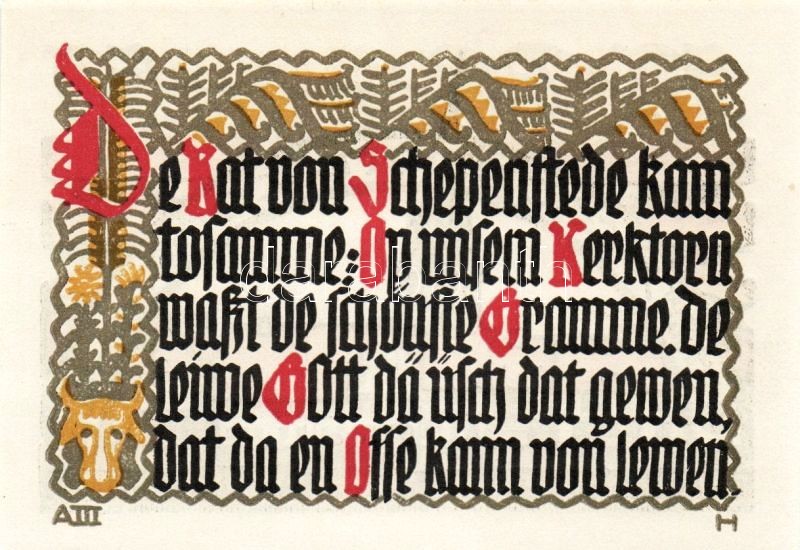 De Rat von Schepenstede kam
tosamme: In unsern Kerktorn
waßt de schönste Gramme. de
leiwe Gott dä üsch dat gewen,
dat da en Osse kann von lewen.
A III H
darabanth